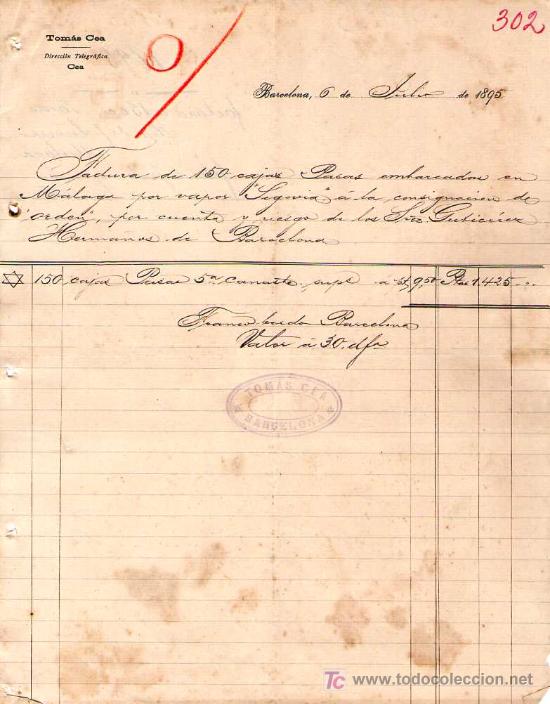 302
Tomás Cea
Dirección Telegráfica
Cea
Barcelona, 6 de Julio de 1895
Factura de 150 cajas Pasas embarcadas en
Málaga por vapor "Segovia" á la consignación de
"orden", por cuenta y riesgo de los Sres. Gutiérrez
Hermanos de Barcelona
150 cajas Pasas 5ª á 9,50 Ptas 1.425
Franco bordo Barcelona
Valor á 30 d/fa
TOMÁS CEA
BARCELONA
TC www.todocoleccion.net